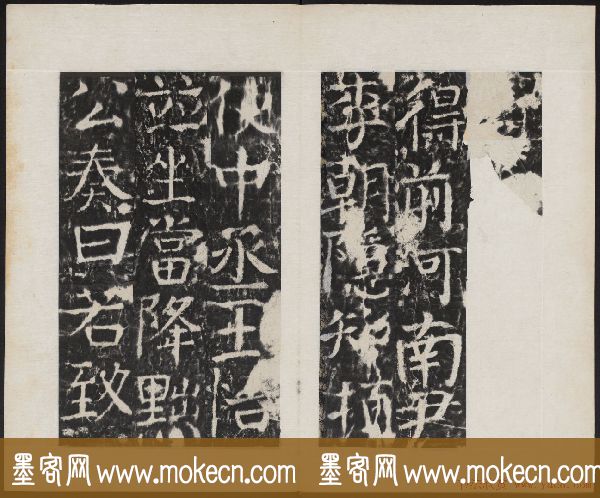 得前河南尹
李朝隱知頓
使中丞王怡
並坐當降黜
公奏曰若致
墨客网 www.mokecn.com
墨客网 www.mokecn.com